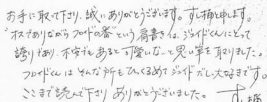 お手に取って下さり、誠にありがとうございます。すし桶と申します。
"オスでありながらフロイドの番"という肩書きは、ジェイドくんにとって
誇りであり、不安でもあると可愛いな…と思い筆を取りました。
フロイドくんは そんな所もひっくるめてジェイドだし大好きです。
ここまで読んで下さり ありがとうございました。